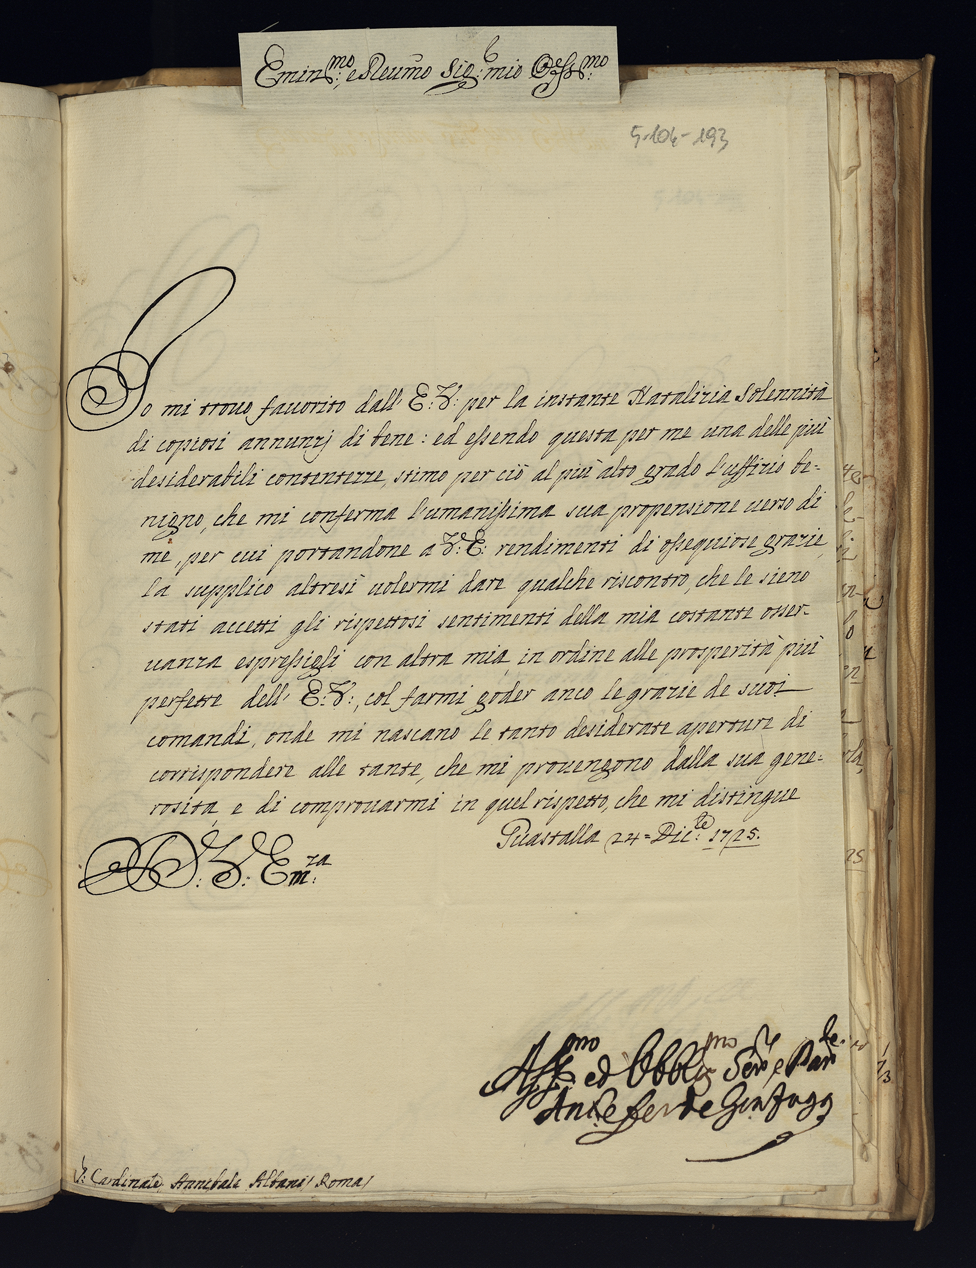 Emin.mo e Reumo Sig.r mio Oss.mo
5-104-193
Io mi trouo fauorito dall' E: V: per la instante Natalizia Solennità
di copiosi annunzj di bene: ed essendo questa per me una delle più
desiderabili contentezze, stimo per ciò al più alto grado l'uffizio be=
nigno, che mi conferma l'umanissima sua propensione uerso di
me, per cui portandone a V: E: rendimenti di ossequiose grazie,
la supplico altresì uolermi dare qualche riscontro, che le sieno
stati accetti gli rispettosi sentimenti della mia costante osser-
uanza espressigli con altra mia, in ordine alle prosperità più
perfette dell' E: V:, col farmi goder anco le grazie de suoi
comandi, onde mi nascano le tanto desiderate aperture di
corrispondere alle tante, che mi prouengono dalla sua gene=
rosità, e di comprouarmi in quel rispetto, che mi distingue
Guastalla 24= Dic:re 1725.
D: V: Em:za
Aff.mo ed Obblig.mo Ser.re e Par.te
Ant.o Fer.do Gonzaga
S: Cardinale Annibale Albani / Roma /